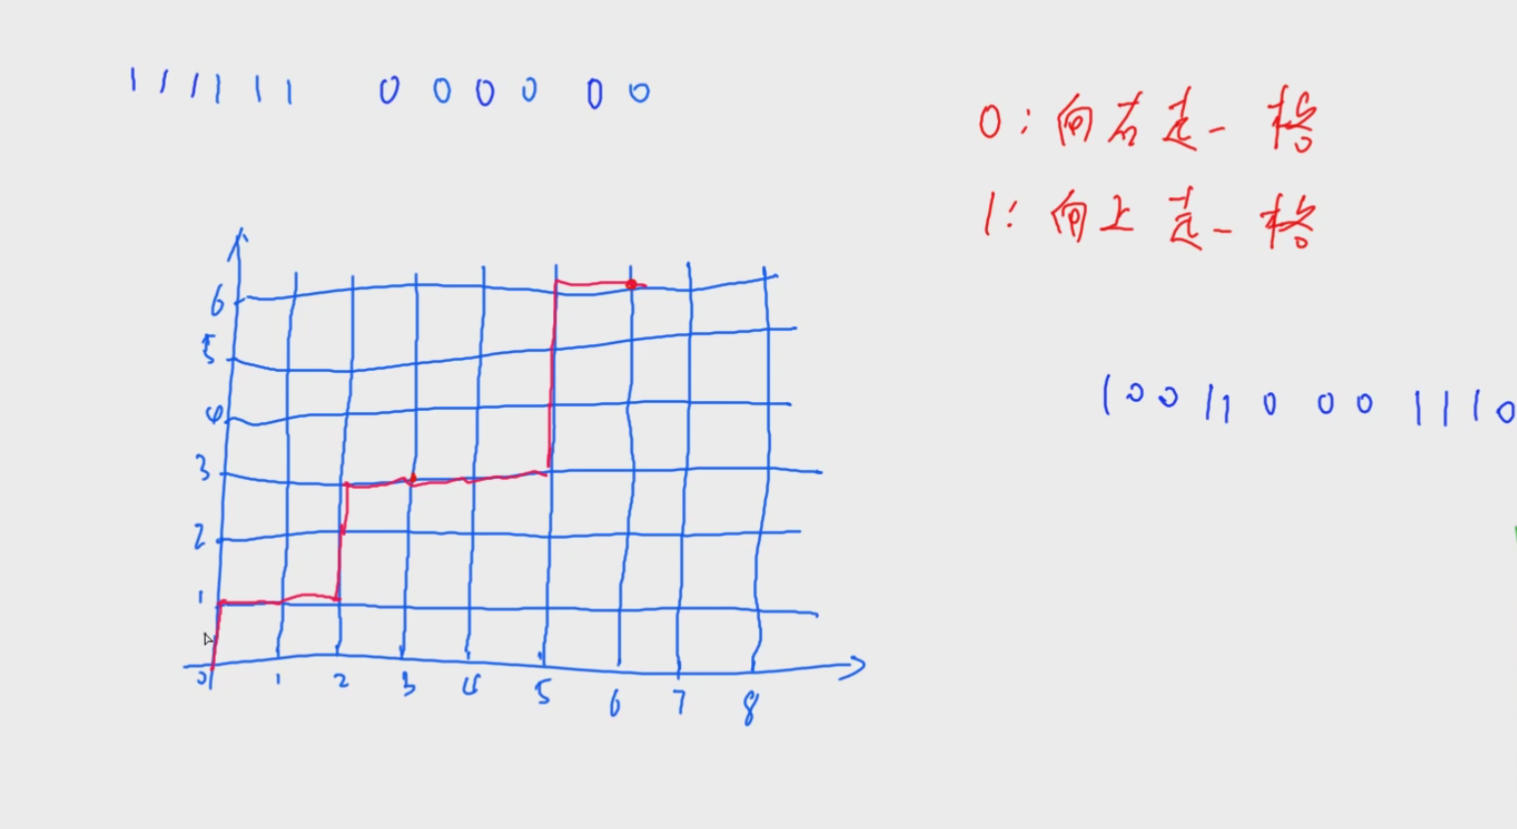 111111 000000
0:向右走一格
1:向上走一格
6
5
4
3
2
1
0 1 2 3 4 5 6 7 8
100110001110